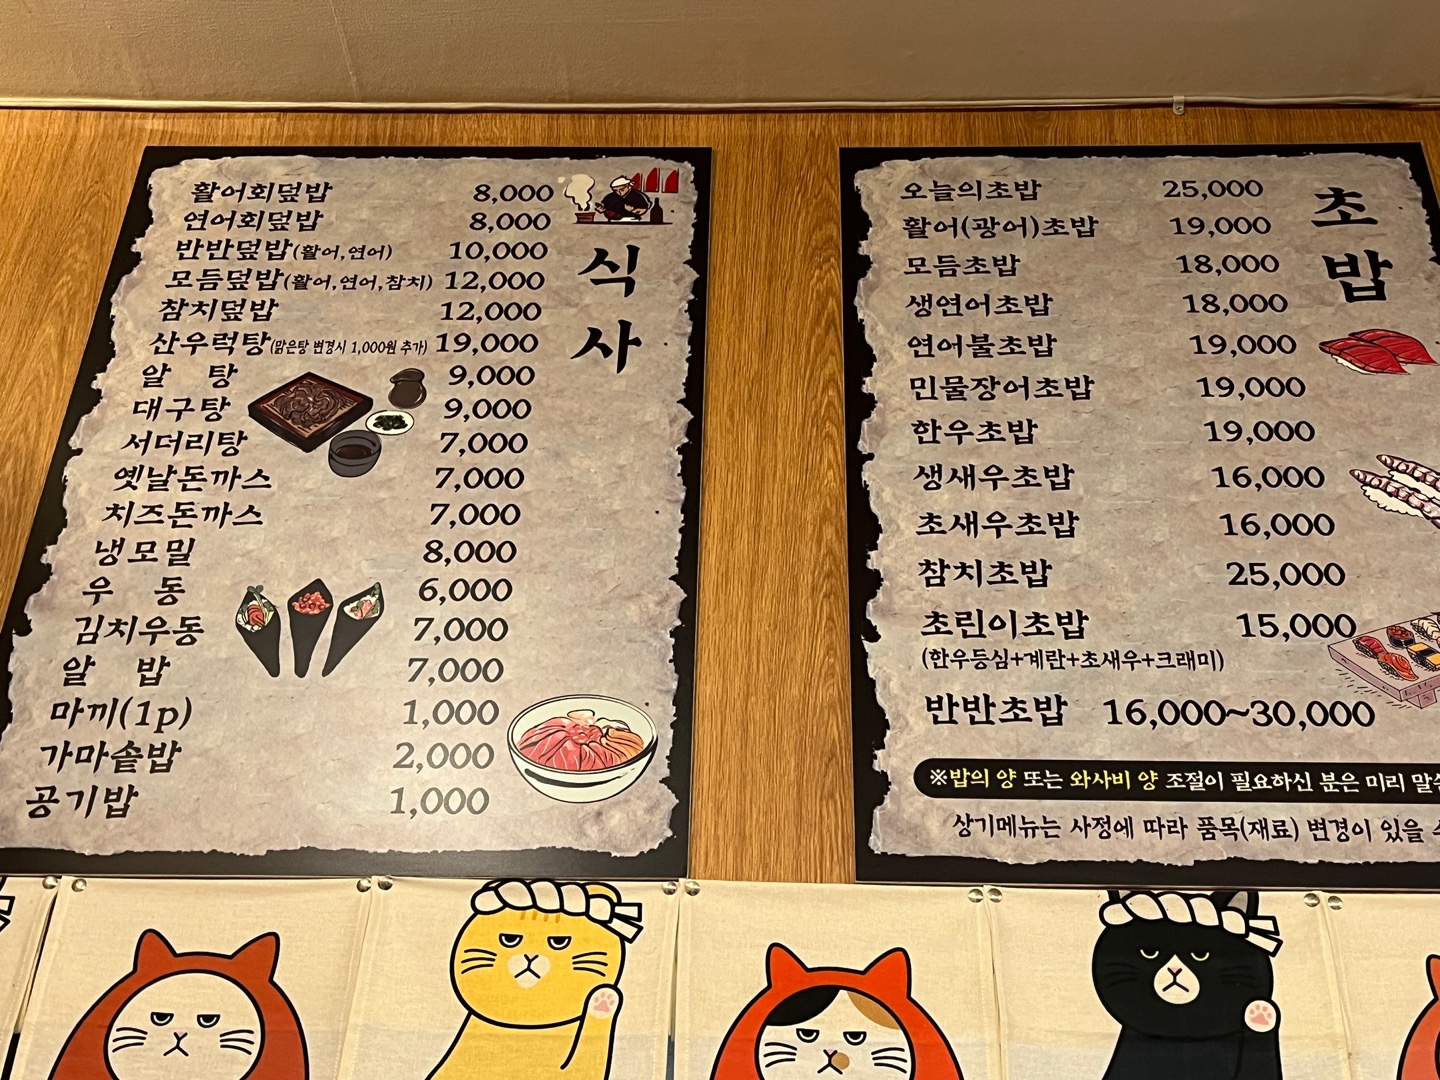 식사
활어회덮밥 8,000
연어회덮밥 8,000
반반덮밥(활어,연어) 10,000
모듬덮밥(활어,연어,참치) 12,000
참치덮밥 12,000
산우럭탕(맑은탕 변경시 1,000원 추가) 19,000
알 탕 9,000
대구탕 9,000
서더리탕 7,000
옛날돈까스 7,000
치즈돈까스 7,000
냉모밀 8,000
우 동 6,000
김치우동 7,000
알 밥 7,000
마끼(1p) 1,000
가마솥밥 2,000
공기밥 1,000
초밥
오늘의초밥 25,000
활어(광어)초밥 19,000
모듬초밥 18,000
생연어초밥 18,000
연어불초밥 19,000
민물장어초밥 19,000
한우초밥 19,000
생새우초밥 16,000
초새우초밥 16,000
참치초밥 25,000
초린이초밥 15,000
(한우등심+계란+초새우+크래미)
반반초밥 16,000~30,000
※밥의 양 또는 와사비 양 조절이 필요하신 분은 미리
상기메뉴는 사정에 따라 품목(재료) 변경이 있을